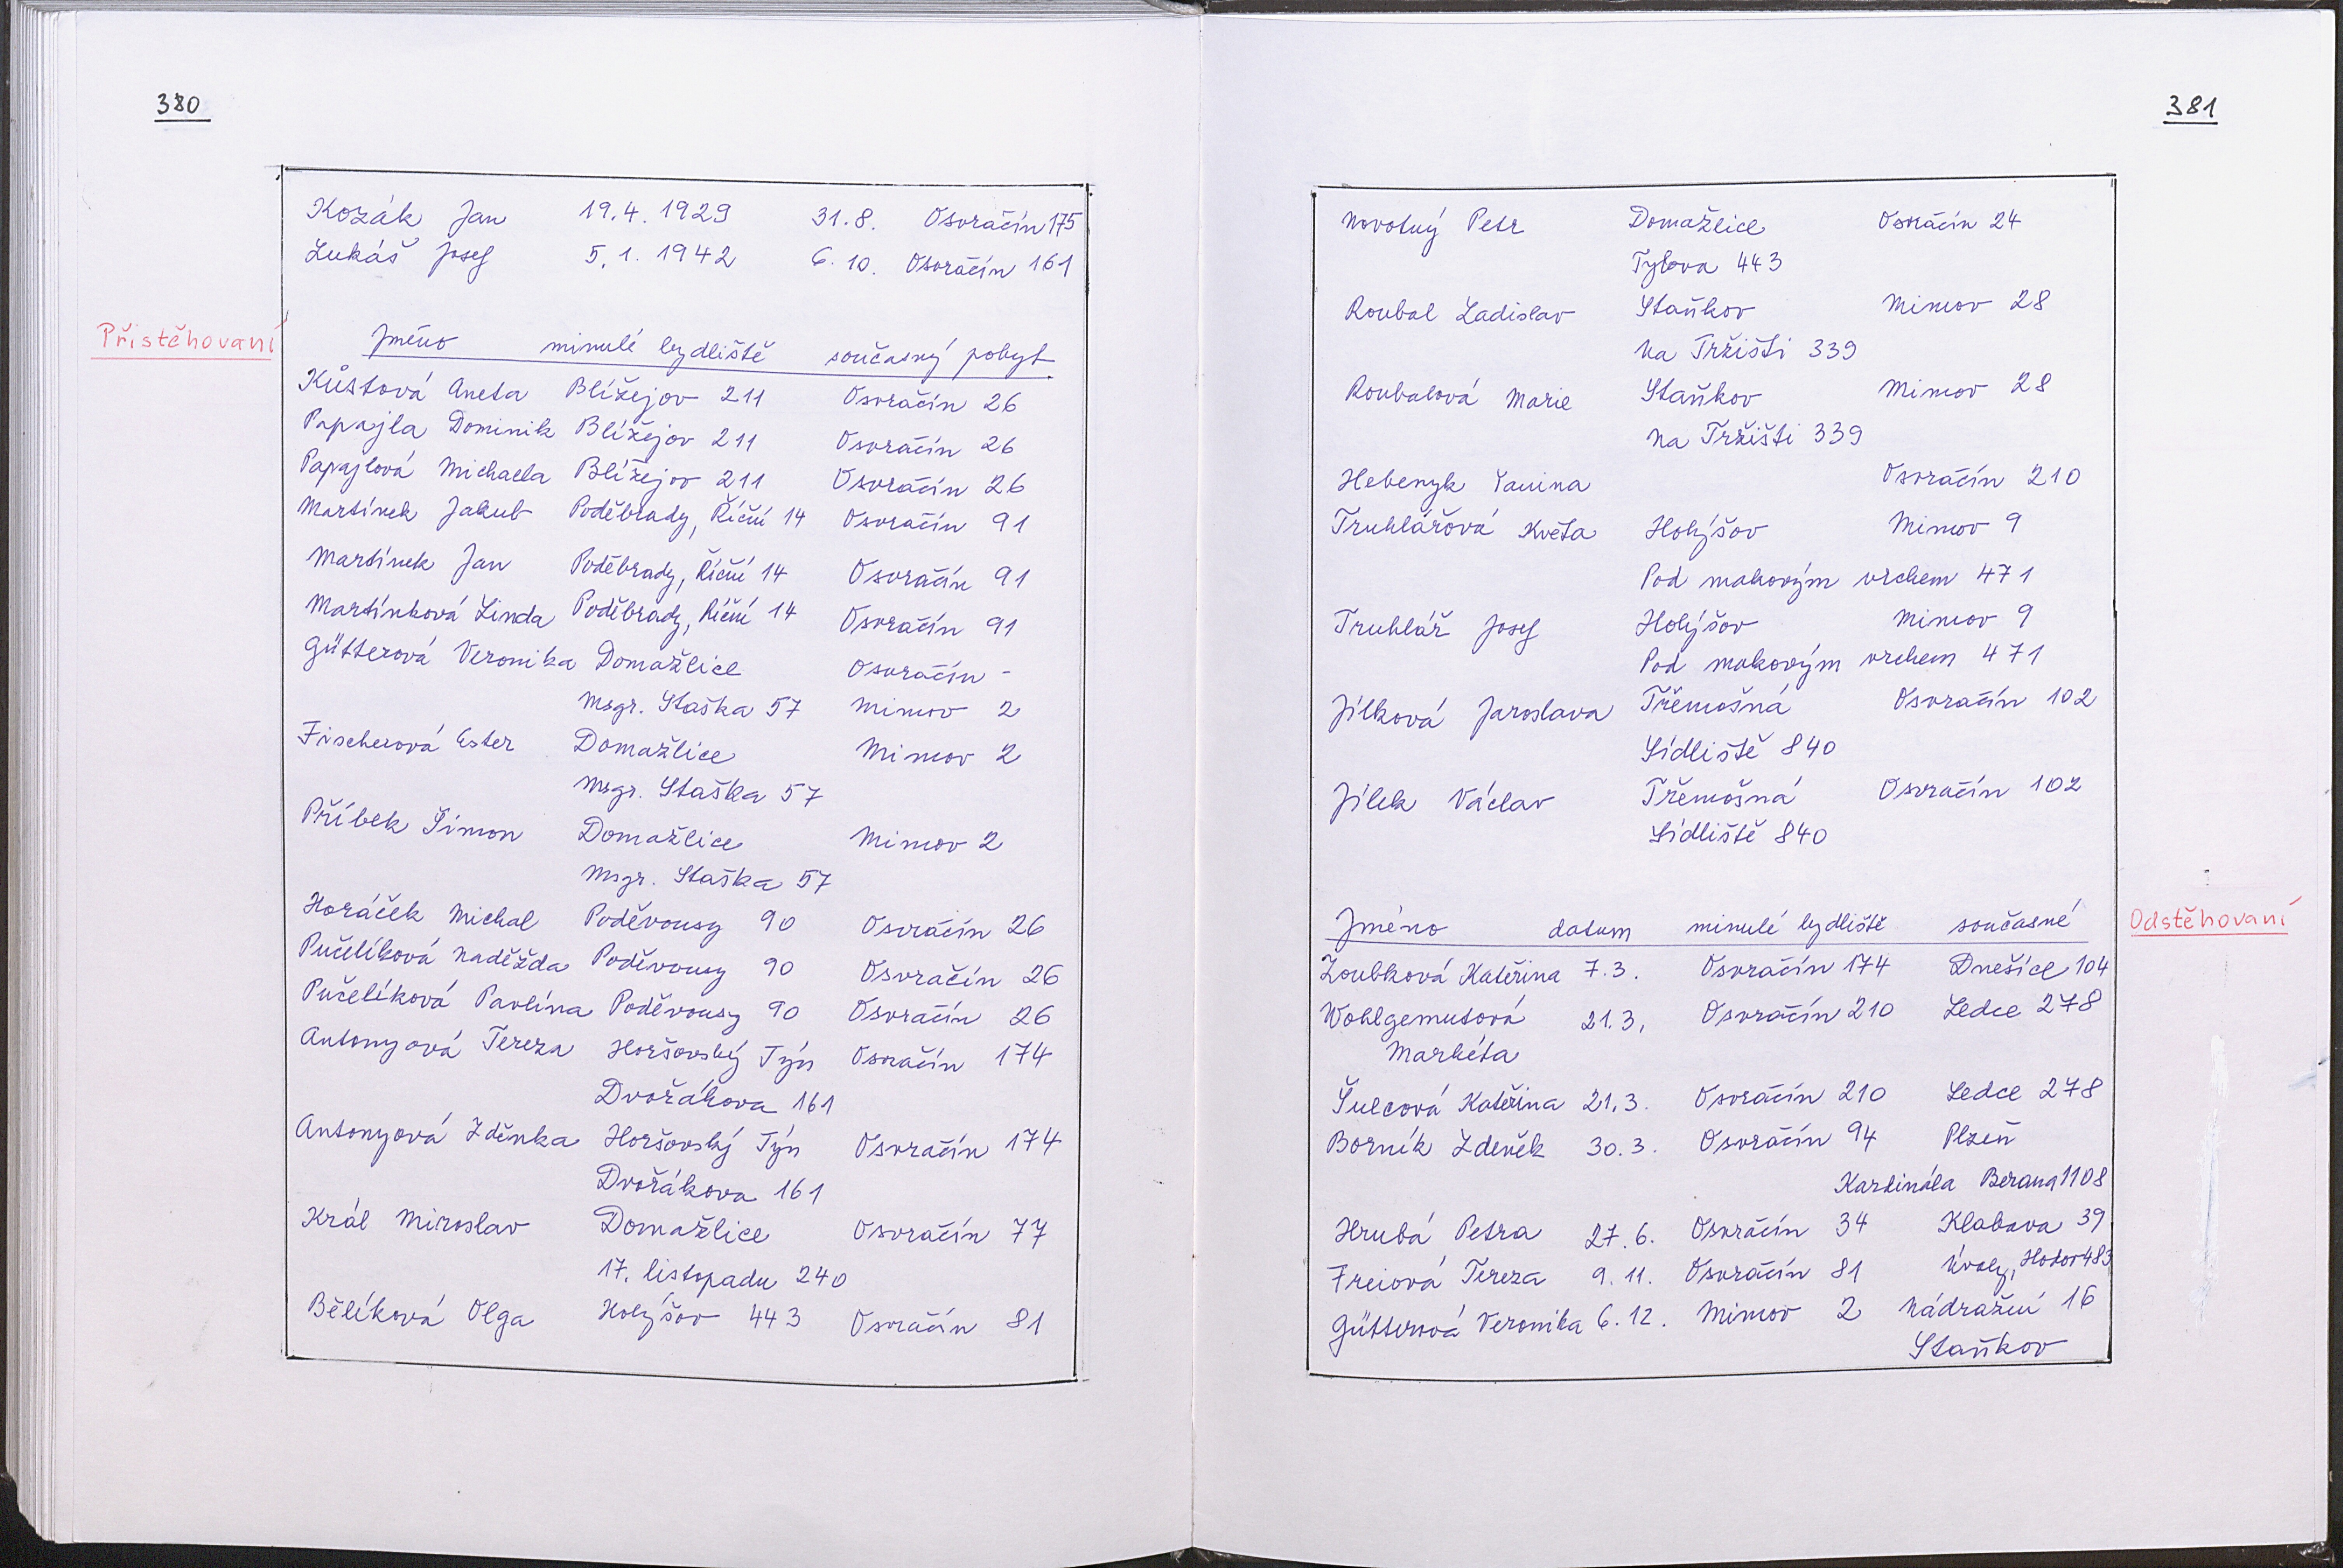 380
Kozák Jan 19.4. 1929 31.8. Osvračín 175
Lukáš Josef 5.1. 1942 6.10. Osvračín 161
Přistěhovaní
Jméno minulé bydliště současný pobyt
Kůstová Aneta Blížejov 211 Osvračín 26
Papajla Dominik Blížejov 211 Osvračín 26
Papajlová Michaela Blížejov 211 Osvračín 26
Martínek Jakub Poděbrady, Říční 14 Osvračín 91
Martínek Jan Poděbrady, Říční 14 Osvračín 91
Martínková Linda Poděbrady, Říční 14 Osvračín 91
Gütterová Veronika Domažlice Osvračín -
Msgr. Staška 57 Mimov 2
Fischerová Ester Domažlice Mimov 2
Msgr. Staška 57
Příbek Šimon Domažlice Mimov 2
Msgr. Staška 57
Horáček Michal Poděvousy 90 Osvračín 26
Pučelíková Naděžda Poděvousy 90 Osvračín 26
Pučelíková Pavlína Poděvousy 90 Osvračín 26
Antonyová Tereza Horšovský Týn Osvračín 174
Dvořákova 161
Antonyová Zdeňka Horšovský Týn Osvračín 174
Dvořákova 161
Král Miroslav Domažlice Osvračín 77
17. listopadu 240
Bělíková Olga Holýšov 443 Osvračín 81
381
Novotný Petr Domažlice Osvračín 24
Tylova 443
Roubal Ladislav Staňkov Mimov 28
Na Tržišti 339
Roubalová Marie Staňkov Mimov 28
Na Tržišti 339
Hebenyk Osvračín 210
Truhlářová Květa Holýšov Mimov 9
Pod makovým vrchem 471
Truhlář Josef Holýšov Mimov 9
Pod makovým vrchem 471
Jílková Jaroslava Třemošná Osvračín 102
Sídliště 840
Jílek Václav Třemošná Osvračín 102
Sídliště 840
Odstěhovaní
Jméno datum minulé bydliště současné
Zoubková Kateřina 7.3. Osvračín 174 Dnešice 104
Wohlgemutová 21.3. Osvračín 210 Ledce 278
Markéta
Šulcová Kateřina 21.3. Osvračín 210 Ledce 278
Borník Zdeněk 30.3. Osvračín 94 Plzeň
Kardinála Berana 1108
Hrubá Petra 27.6. Osvračín 34 Klabava 39
Freiová Tereza 9.11. Osvračín 81 Úvaly, Hodov 483
Gütterová Veronika 6.12. Mimov 2 Nádražní 16
Staňkov